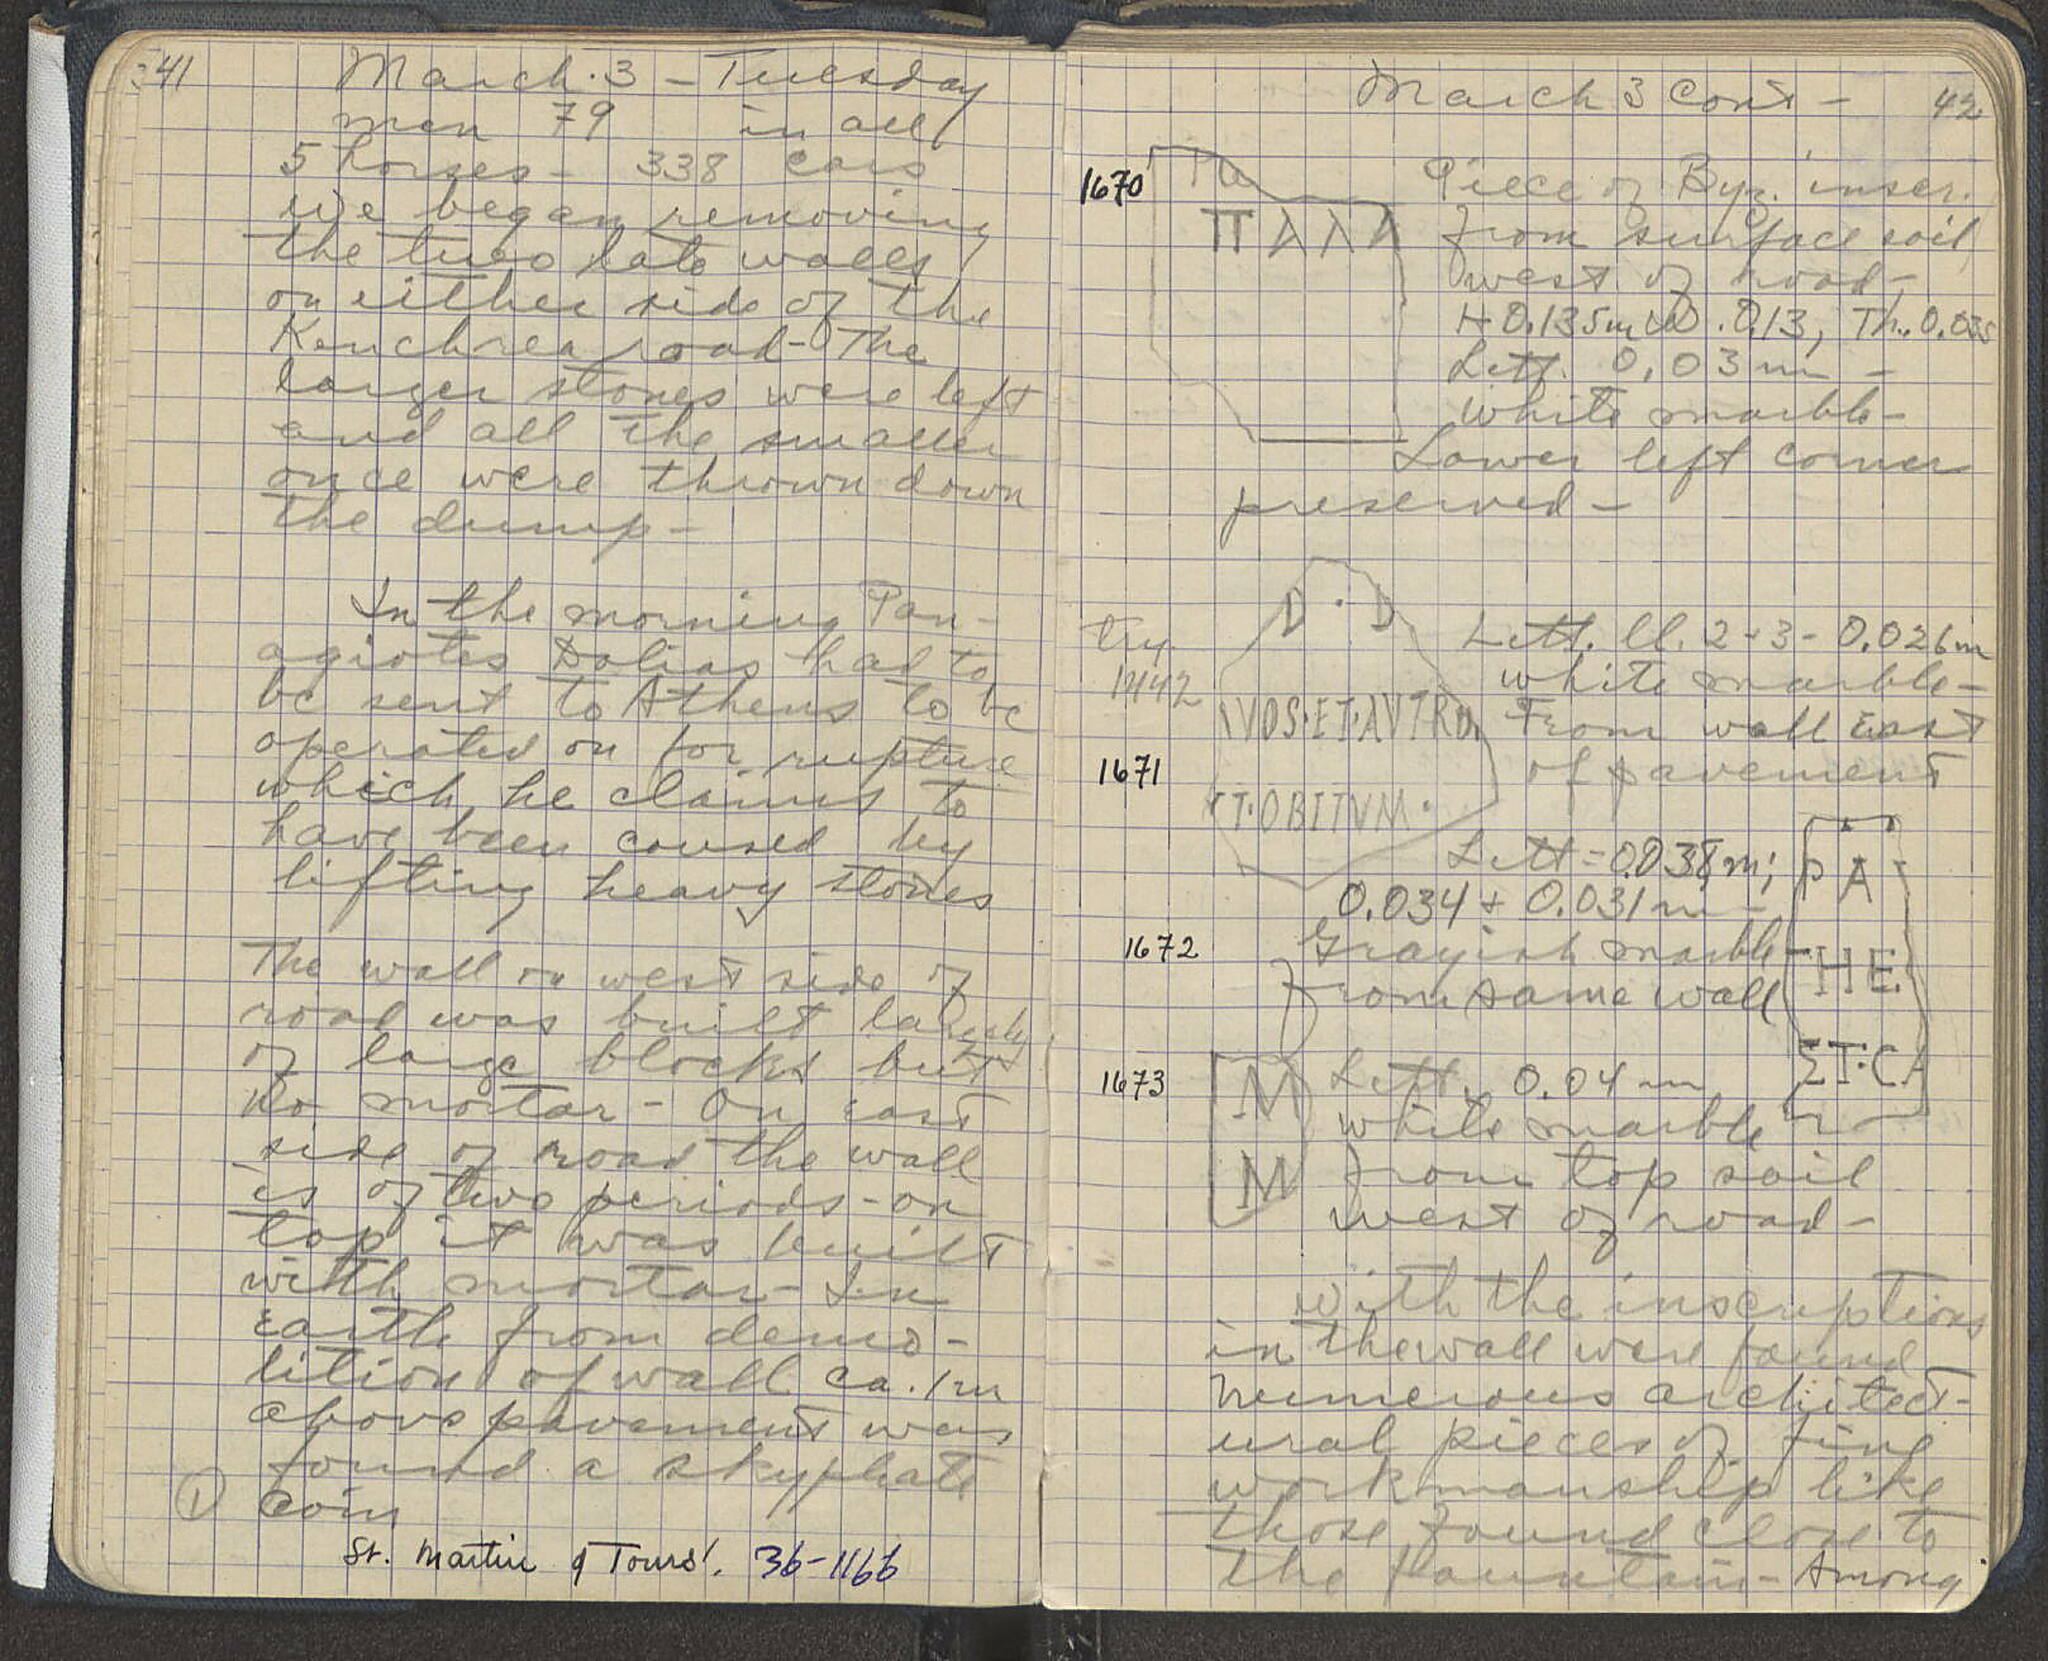 41
March. 3 - Tuesday
men 79 in all
5 horses - 338 cars
We began removing
the two late walls
on either side of the
Kenchrea road - The
larger stones were left
and all the smaller
once were thrown down
the dump -
In the morning Pan-
agiotes Dolias had to
be sent to Athens to be
operated on for rupture
which he claims to
have been caused by
lifting heavy stones
The wall on west side of
road was built largely
of large blocks but
no mortar - On east
side of road the wall
is of two periods - on
top it was built
with mortar - In
earth from demo-
lition of wall ca. 1 m
above pavement was
found a skyphate
① coin
St. Martin of Tours! 36-1166
March 3 Cont - 42
1670
ΠΑΛΛ
Piece of Byz. inscr.
from surface soil,
west of road -
H 0.135m W .013, Th. 0.035
Lett. 0,03 m -
white marble -
Lower left corner
preserved -
D · D
1442
VOS·ET·AVTRO
T·OBITVM·
Lett. ll. 2+3 - 0.026m
white marble -
From wall East
of pavement
1671
Lett = 0.038m;
0.034 + 0.031 m -
1672 Grayish marble
from same wall
PA
HE
ΣT·CA
1673
M
M
Lett. 0.04 m
white marble
from top soil
west of road -
With the inscriptions
in the wall were found
numerous architect-
ural pieces of fine
workmanship like
those found close to
the fountain - Among